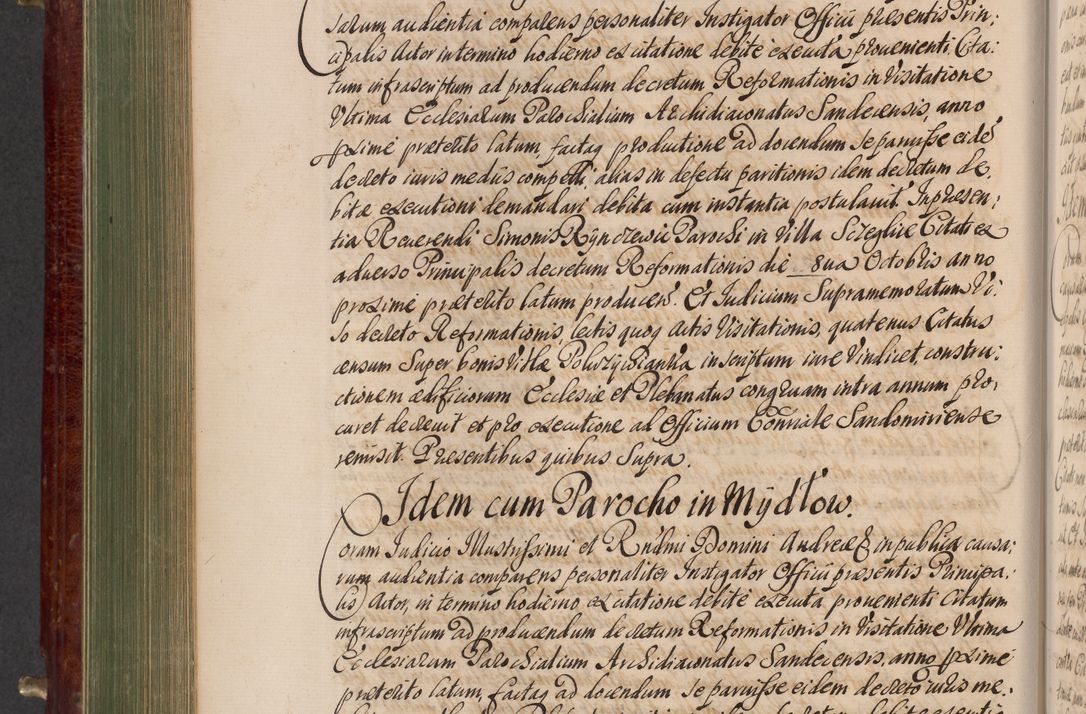 sarum audientia comparens personaliter Instigator Officii praesentis Prin:
cipalis Actor in termino hodierno ex citatione debite executa provenienti. Cita:
tum infrascriptum ad producendum decretum Reformationis in Visitatione
Ultima Ecclesiarum Parochialium Archidiaconatus Sandecensis, anno
proxime praeterito latum, factaq productione ad docendum se paruisse eidē
decreto iuris mediis compelli, alias in defectu paritionis idem decretum de:
bitae executioni demandari debita cum instantia postulavit. In praesen:
tia Reverendi Simonis Rynczewic Parochi in Villa Sczeglice Citati ex
adverso Principalis decretum Reformationis die 8va Octobris anno
proxime praeterito latum producens. Et Iudicium Supramemoratum Vi:
so decreto Reformationis, lectis quoq actis Visitationis, quatenus Citatus
censum Super bonis Villae inscriptum iure Vindicet, constru:
ctionem aedificiorum Ecclesiae et Plebanatus congruam intra annum pro:
curet decrevit et pro executione ad Officium Conriale Sandomiriense
remisit. Praesentibus quibus Supra.
Idem cum Parocho in Mydłow.
Coram Iudicio Illustrissimi et Rndmi Domini Andreae & in publica causa:
rum audientia comparens personaliter Instigator Officii praesentis Principa:
lis Actor, in termino hodierno ex citatione debite executa provenienti Citatum
infrascriptum ad producendum decretum Reformationis in Visitatione Ultima
Ecclesiarum Parochialium Archidiaconatus Sandecensis, anno proxime
praeterito latum, factaq ad docendum se paruisse eidem decreto iuris me: